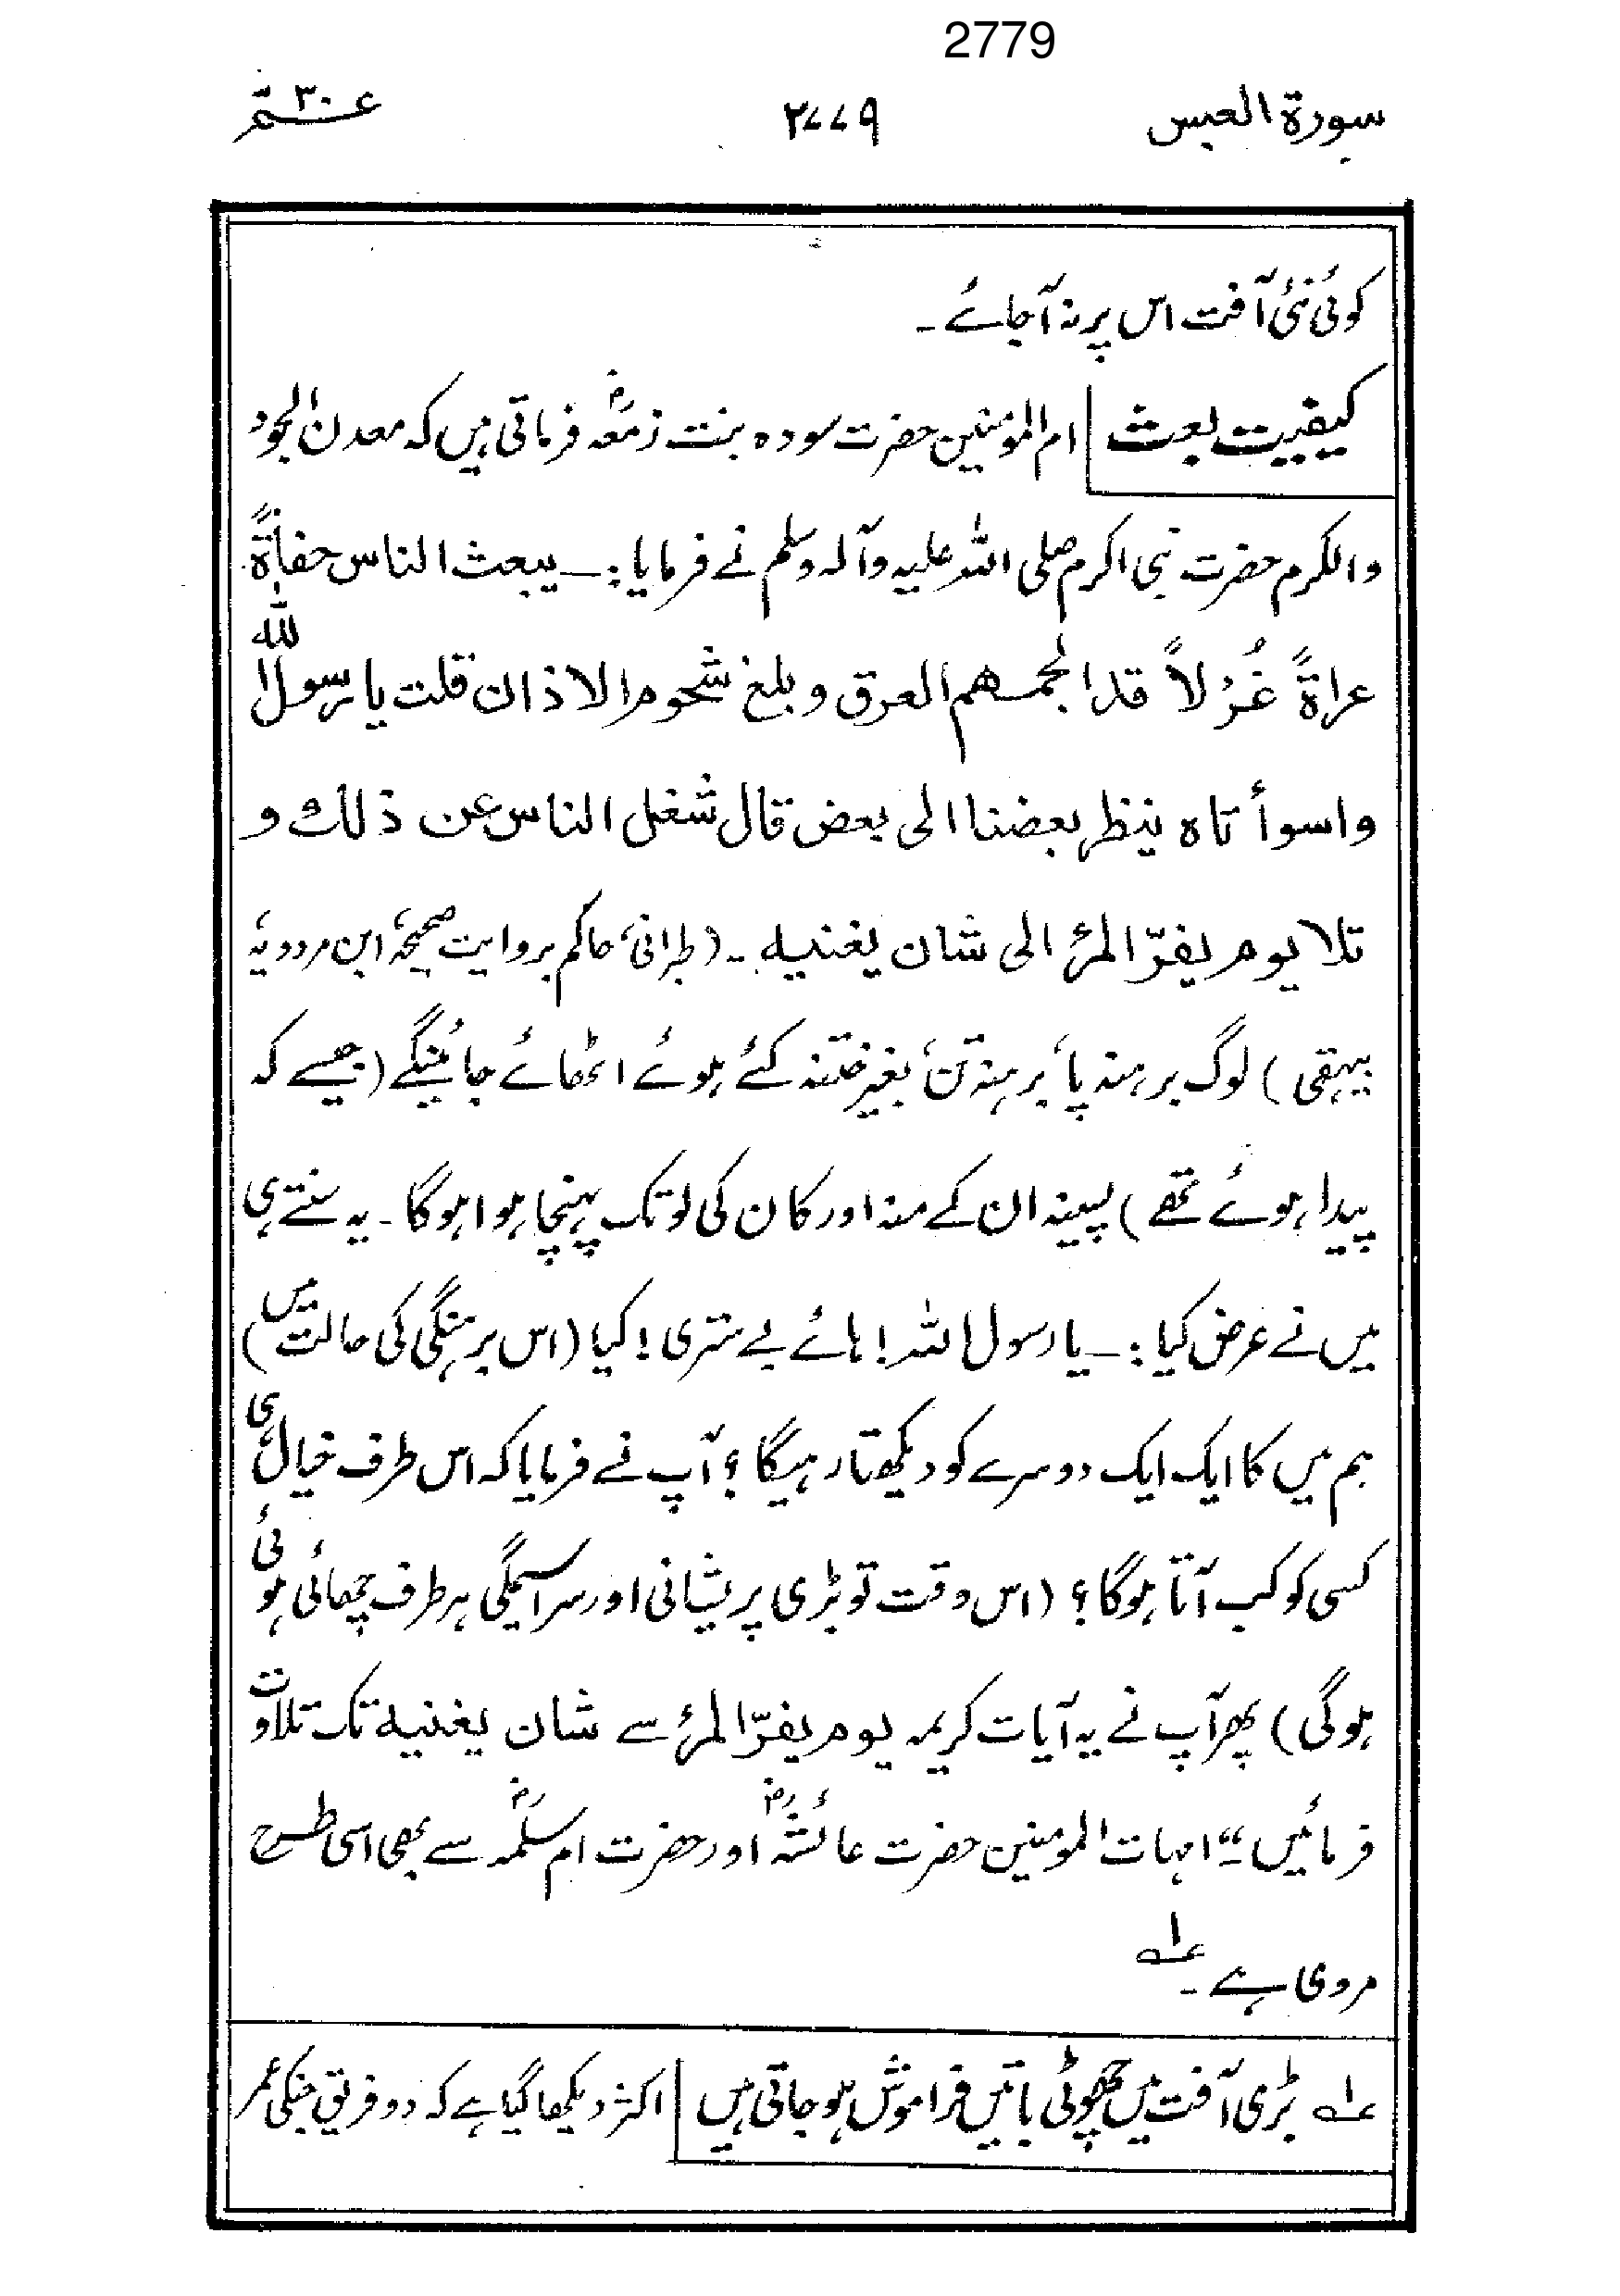 2779
سورۃ العبس ۲۷۷۹ عم ۳۰
کوئی نئی آفت اس پر نہ آجائے۔
کیفیت بعث ام المؤمنین حضرت سودہ بنت زمعہؓ فرماتی ہیں کہ معدن الجود
والکرم حضرت نبی اکرم صلی اللہ علیہ وآلہ وسلم نے فرمایا:۔ یبعث الناس حفاۃً
عراۃً غُرْلاً قد الجمھم العرق وبلغ شحوم الاذان قلت یا رسول اللہ
واسوأتاہ ینظر بعضنا الی بعض قال شغل الناس عن ذلک و
تلا یوم یفرّ المرء الی شان یغنیہ۔ (طبرانی، حاکم بروایت صحیحہ، ابن مردویہ،
بیہقی) لوگ برہنہ پا، برہنہ تن، بغیر ختنہ کئے ہوئے اٹھائے جائینگے (جیسے کہ
پیدا ہوئے تھے) پسینہ ان کے منہ اور کان کی لو تک پہنچا ہوا ہوگا۔ یہ سنتے ہی
میں نے عرض کیا:۔ یا رسول اللہ! ہائے بے ستری! کیا (اس برہنگی کی حالت میں)
ہم میں کا ایک ایک دوسرے کو دیکھتا رہیگا؟ آپ نے فرمایا کہ اس طرف خیال ہی
کسی کو کب آتا ہوگا؟ (اس وقت تو بڑی پریشانی اور سراسیمگی ہر طرف چھائی ہوئی
ہوگی) پھر آپ نے یہ آیات کریمہ یوم یفرّ المرء سے شان یغنیہ تک تلاوت
فرمائیں"۔ امہات المومنین حضرت عائشہؓ اور حضرت ام سلمہؓ سے بھی اسی طرح
مروی ہے۔ ؎۱
؎۱ بڑی آفت میں چھوٹی باتیں فراموش ہوجاتی ہیں اکثر دیکھا گیا ہے کہ دو فریق جنکی عمر